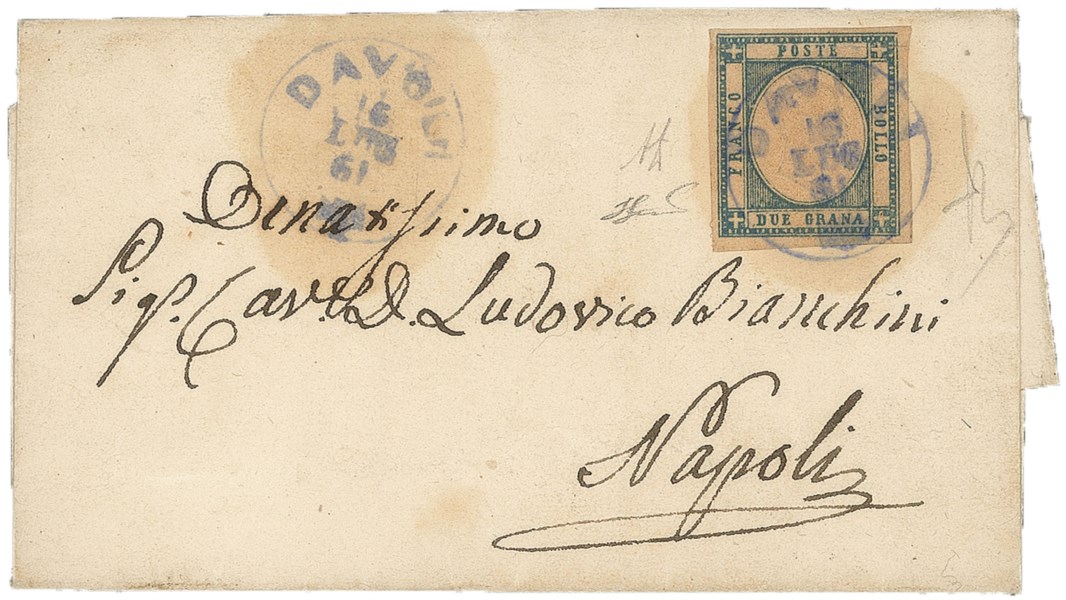 DAVOLI
16
LUG
61
POSTE
FRANCO
BOLLO
DUE GRANA
16
LUG
61
Ornatissimo
Sigr. Cavre. D. Ludovico Bianchini
Napoli